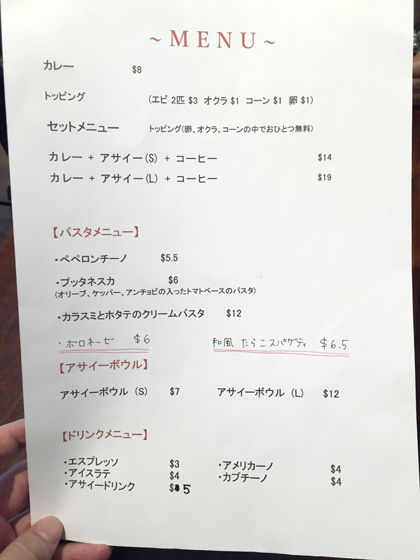 ~ MENU ~
カレー $8
トッピング (エビ 2匹 $3 オクラ $1 コーン $1 卵 $1)
セットメニュー トッピング(卵、オクラ、コーンの中でおひとつ無料)
カレー + アサイー(S) + コーヒー $14
カレー + アサイー(L) + コーヒー $19
【パスタメニュー】
・ペペロンチーノ $5.5
・プッタネスカ $6
(オリーブ、ケッパー、アンチョビの入ったトマトベースのパスタ)
・カラスミとホタテのクリームパスタ $12
・ボロネーゼ $6 和風 たらこスパゲティ $6.5
【アサイーボウル】
アサイーボウル (S) $7 アサイーボウル (L) $12
【ドリンクメニュー】
・エスプレッソ $3 ・アメリカーノ $4
・アイスラテ $4 ・カプチーノ $4
・アサイードリンク $5